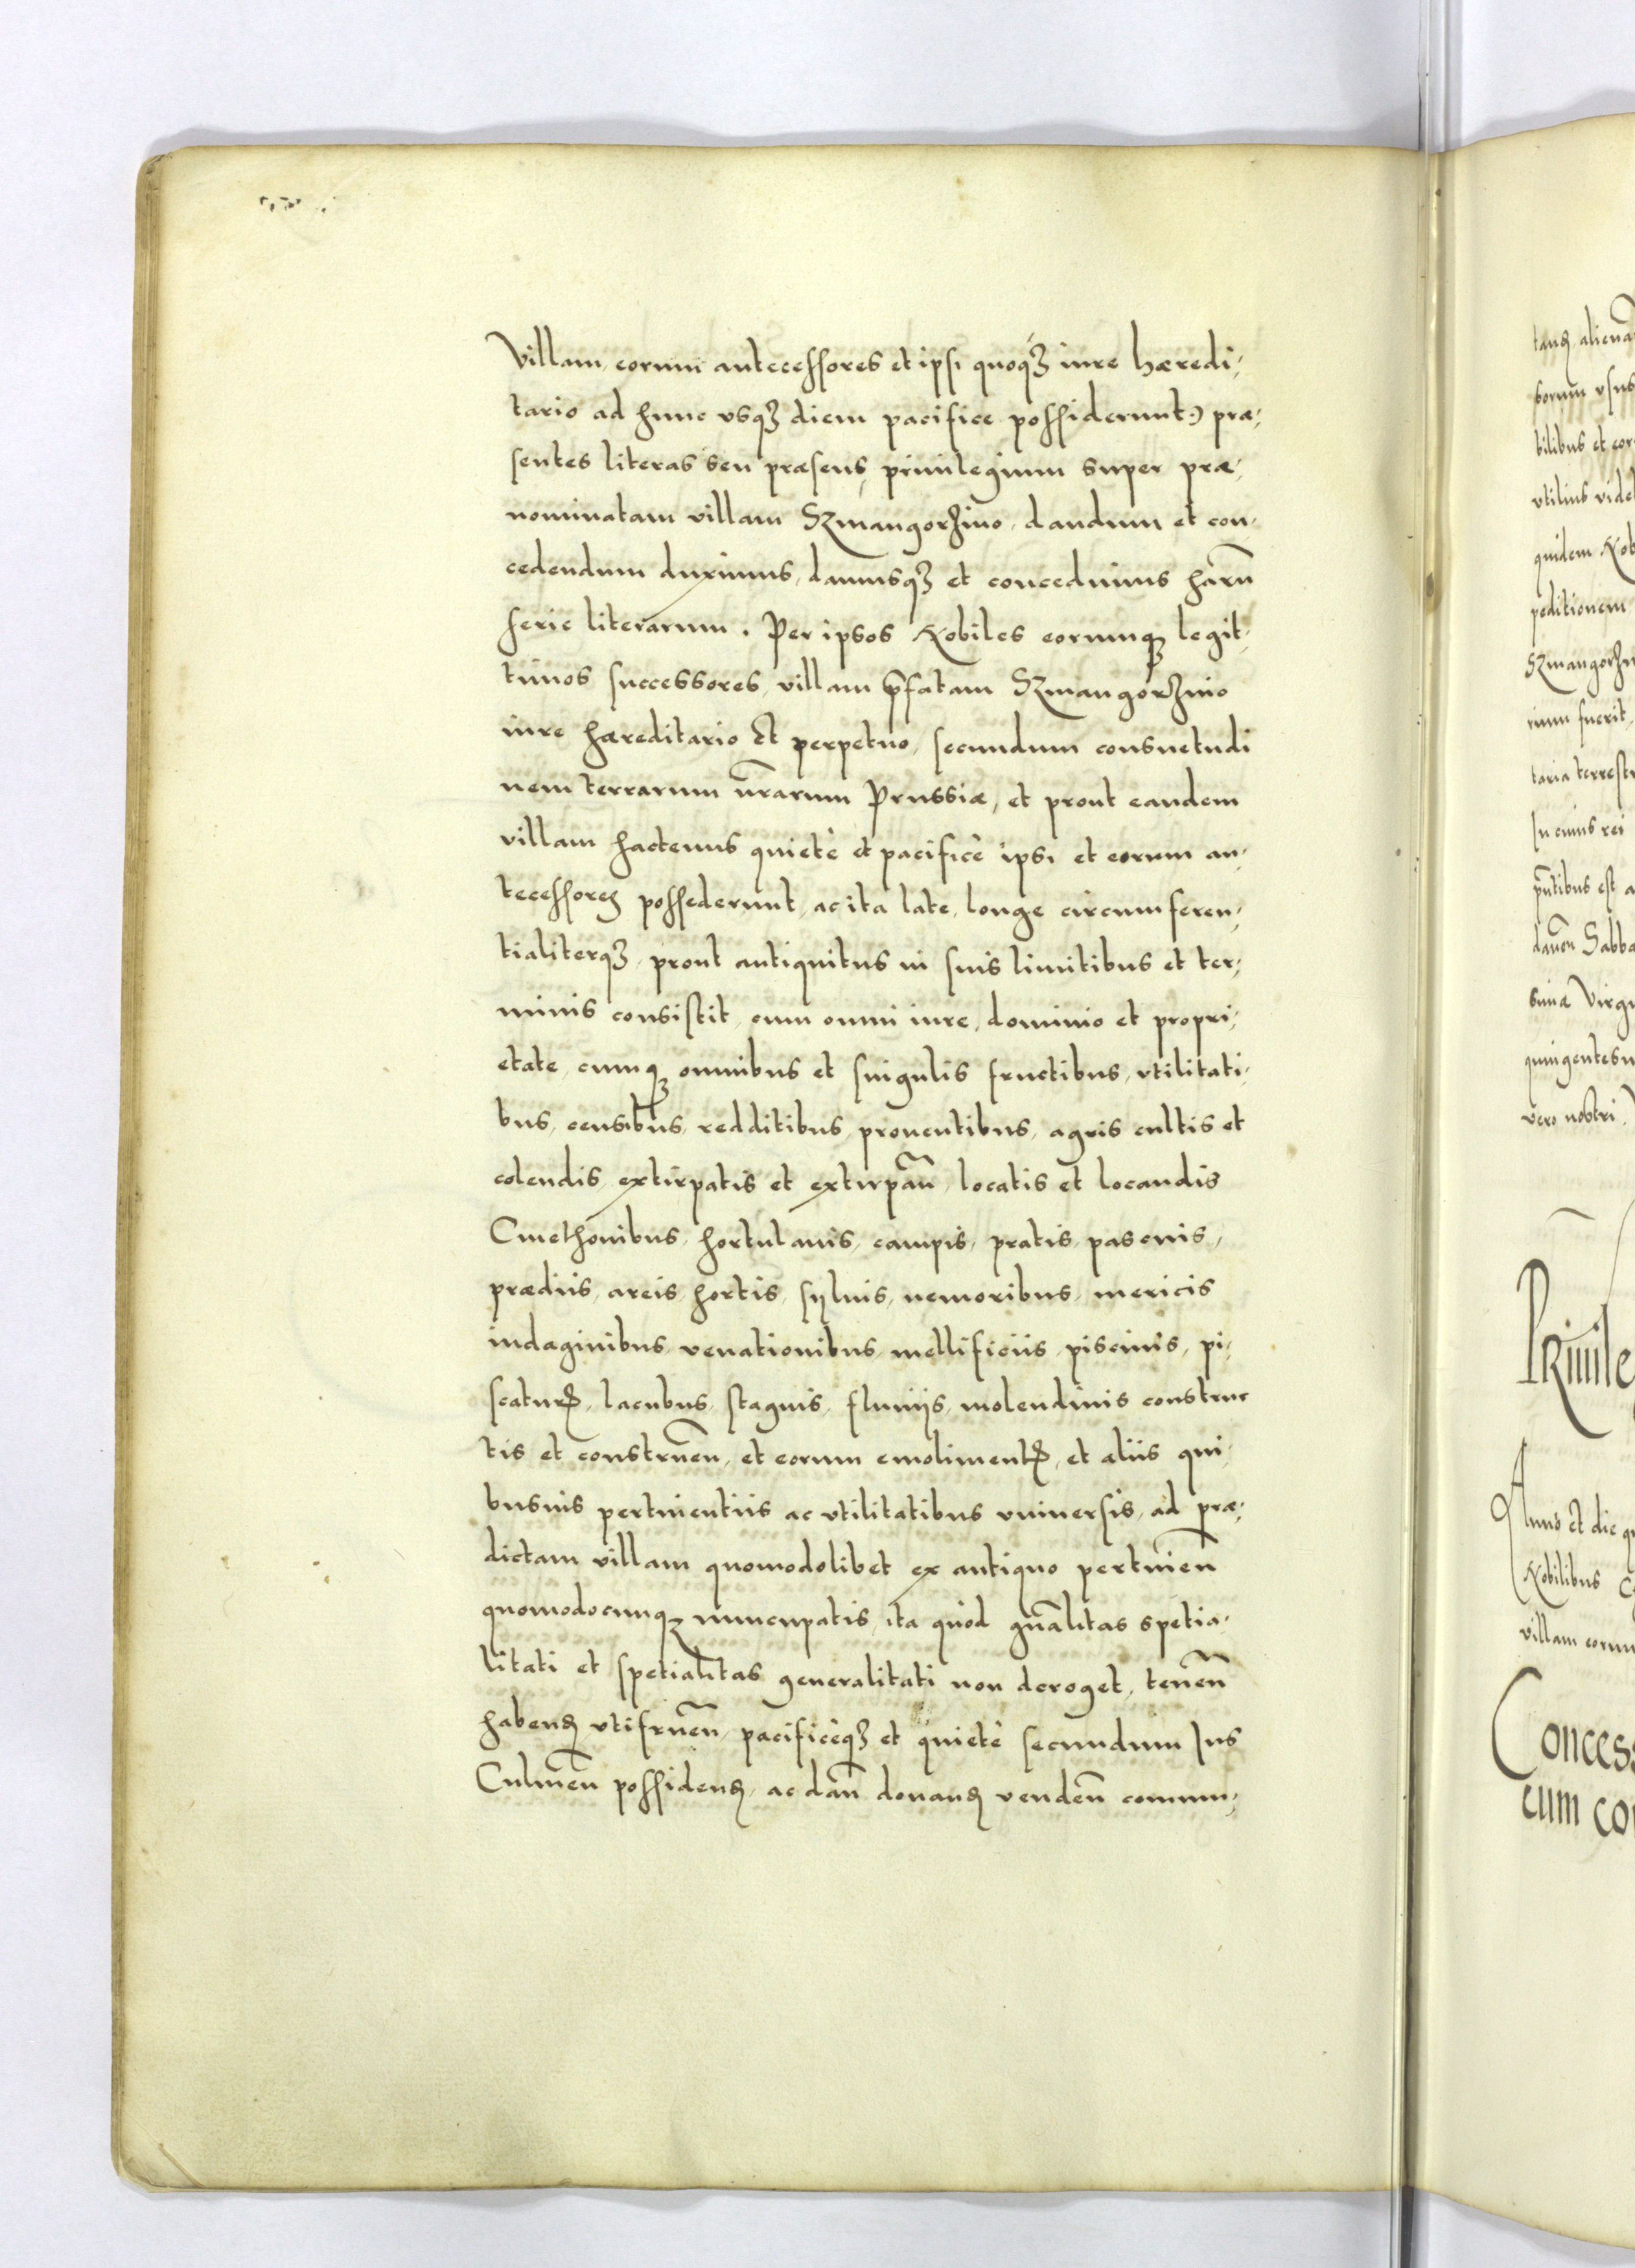 Villam, eorum antecessores et ipsi quoqꝫ iure hæredi,
tario ad hunc vsqꝫ diem pacifice possiderunt:) præ,
sentes literas seu præsens, priuilegium super præ,
nominatam villam Szmangorzino, dandum et con,
cedendum duximus, damusqꝫ et concedimus harũ
serie literarum. Per ipsos Nobiles eorumqꝫ legit,
timos successores, villam p̃fatam Szmangorzino
iure hæreditario et perpetuo, secundum consuetudi
nem terrarum nr̃arum Prussiæ, et prout eandem
villam hactenus quietè et pacificè ipsi et eorum an,
tecessores possederunt, ac ita late, longe circumferen,
tialiterqꝫ, prout antiquitus in suis limitibus et ter,
minis consistit, cum omni iure, dominio et propri,
etate, cumqꝫ omnibus et singulis fructibus, vtilitati,
bus, censibus, redditibus, prouentibus, agris cultis et
colendis, extirpatis et extirpañ, locatis et locandis
Cmethonibus, hortulanis, campis, pratis, pascuis,
prædiis, areis, hortis, syluis, nemoribus, mericis
indaginibus, venationibus, mellificiis, piscinis, pi,
scaturꝭ, lacubus, stagnis, fluuijs, molendinis construc
tis et construeñ, et eorum emolimentꝭ, et aliis qui,
busuis pertinentiis ac vtilitatibus vniuersis, ad præ,
dictam villam quomodolibet ex antiquo pertineñ
quomodocumqꝫ nuncupatis, ita quòd gñalitas spetia,
litati et spetialitas generalitati non deroget, teneñ
habenꝭ vtifrueñ, pacificèqꝫ et quietè secundum Ius
Culmeñ possidenꝭ, ac dañ donanꝭ vendeñ commu,
tanꝭ aliena
borum vsus
bilibus et eor
vtilius videb
quidem Nob
peditionem
Szmangorzin
rium fuerit,
taria terrestr
In cuius rei
pñtibus est a
dateñ Sabba
simæ Virgi
quingentesi
vero nostri
Priuile
Anno et die q
Nobilibus
villam eorum
Concess
cum con